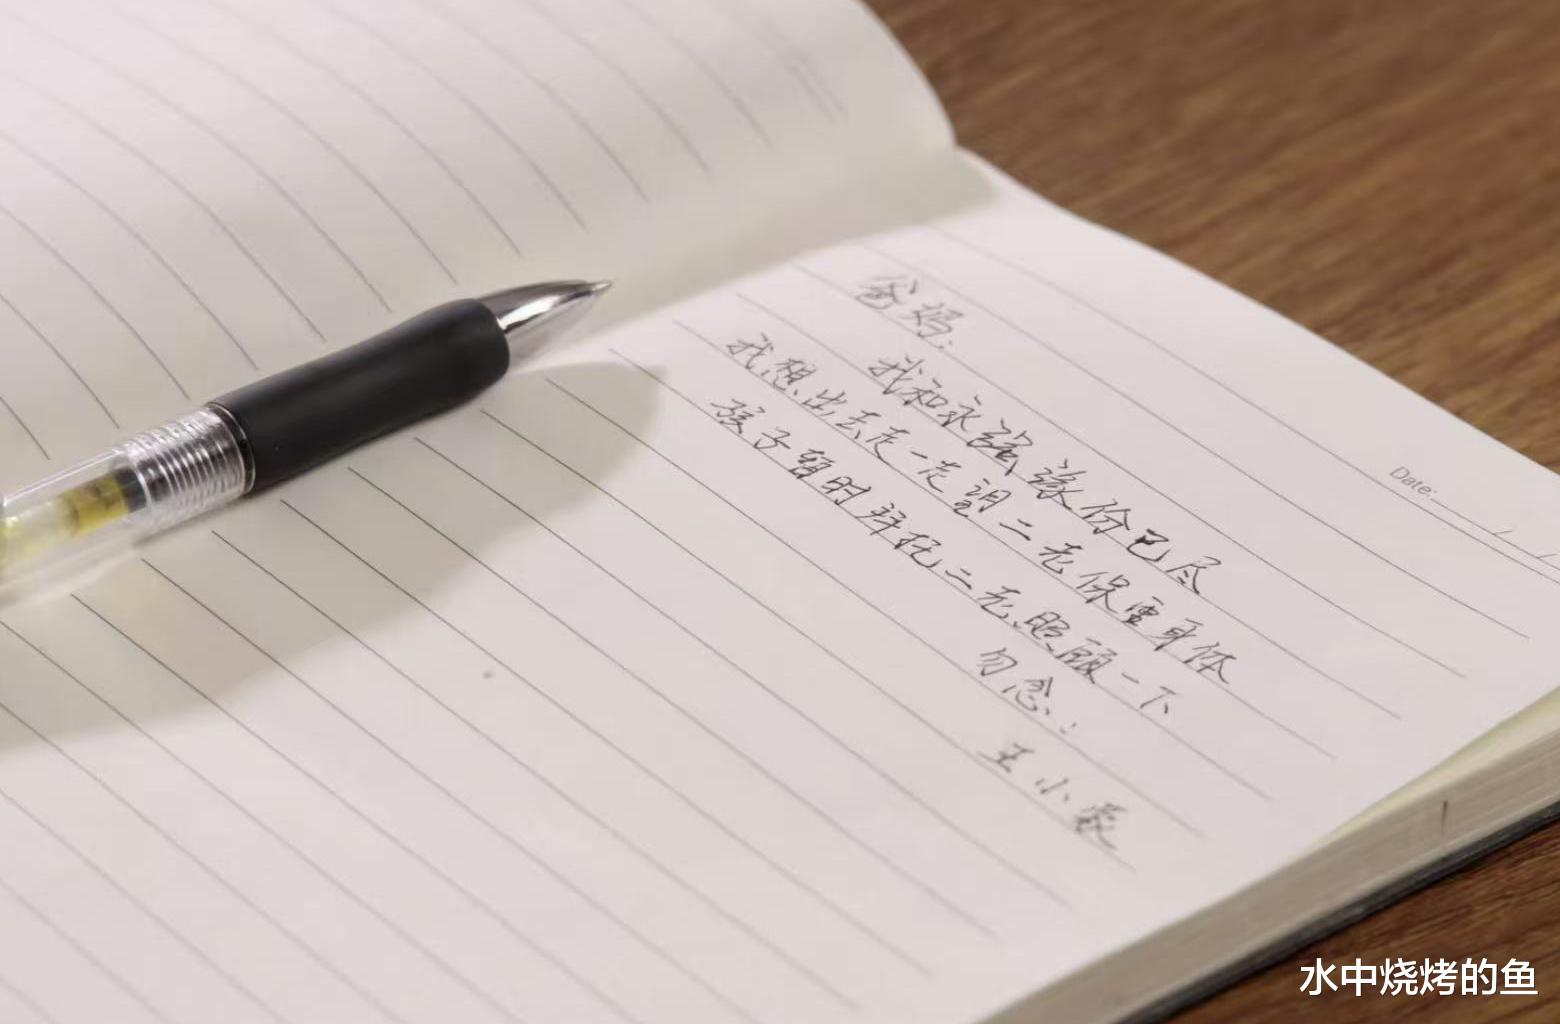 Date: / /
爸妈:
我和永强缘份已尽
我想出去走一走望二老保重身体
孩子暂时拜托二老照顾一下
勿念!
王小蒙
水中烧烤的鱼